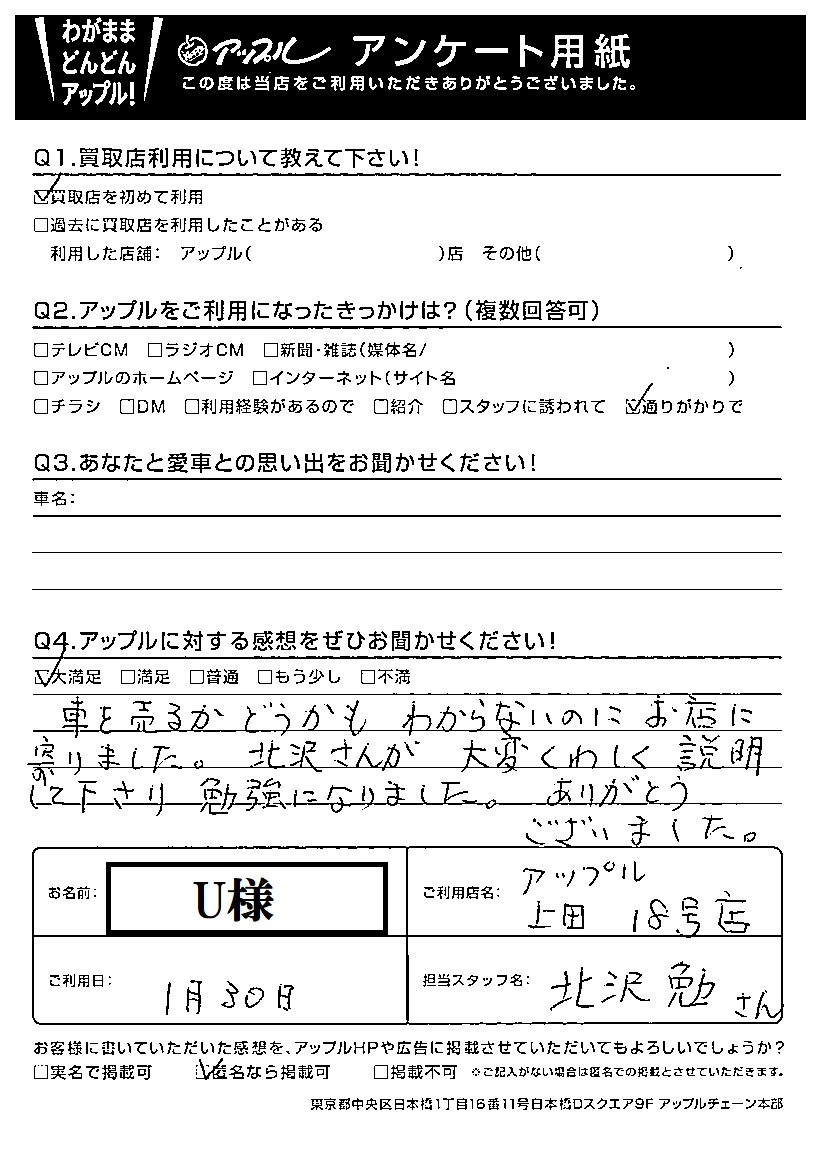 わがまま
どんどん
アップル!
アップル アンケート用紙
この度は当店をご利用いただきありがとうございました。
Q1.買取店利用について教えて下さい!
☑買取店を初めて利用
□過去に買取店を利用したことがある
利用した店舗: アップル( )店 その他( )
Q2.アップルをご利用になったきっかけは?(複数回答可)
□テレビCM □ラジオCM □新聞・雑誌(媒体名/ )
□アップルのホームページ □インターネット(サイト名 )
□チラシ □DM □利用経験があるので □紹介 □スタッフに誘われて ☑通りがかりで
Q3.あなたと愛車との思い出をお聞かせください!
車名:
Q4.アップルに対する感想をぜひお聞かせください!
☑大満足 □満足 □普通 □もう少し □不満
車を売るか どうかも わからないのに お店に
寄りました。 北沢さんが 大変くわしく 説明
して下さり 勉強になりました。 ありがとう
ございました。
お名前: U様
ご利用店名: アップル
上田 18号店
ご利用日: 1月30日
担当スタッフ名: 北沢 勉 さん
お客様に書いていただいた感想を、アップルHPや広告に掲載させていただいてもよろしいでしょうか?
□実名で掲載可 ☑匿名なら掲載可 □掲載不可 ※ご記入がない場合は匿名での掲載とさせていただきます。
東京都中央区日本橋1丁目16番11号日本橋Dスクエア9F アップルチェーン本部